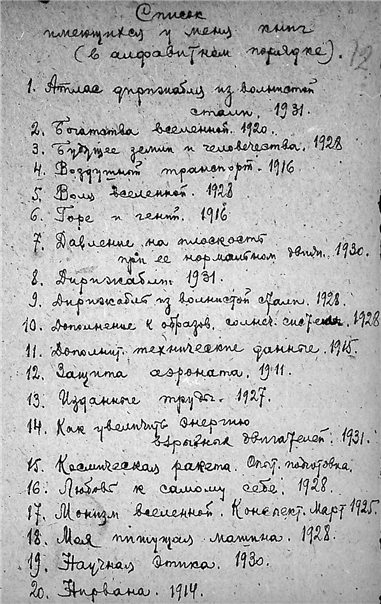 Список
имеющихся у меня книг
(в алфавитном порядке).
12
1. Атлас дирижабля из волнистой
стали. 1931.
2. Богатства вселенной. 1920.
3. Будущее земли и человечества. 1928
4. Воздушный транспорт. 1916
5. Воля вселенной. 1928
6. Горе и гений. 1916
7. Давление на плоскость
при ее нормальном движ. 1930.
8. Дирижабль. 1931.
9. Дирижабль из волнистой стали. 1928.
10. Дополнение к образов. солнеч. системы. 1928
11. Дополнит. технические данные. 1915.
12. Защита аэроната. 1911.
13. Изданные труды. 1927.
14. Как увеличить энергию
взрывных двигателей. 1931.
15. Космическая ракета. Опыт. подготовка.
16. Любовь к самому себе. 1928.
17. Монизм вселенной. Конспект. Март 1925.
18. Моя пишущая машина. 1928.
19. Научная этика. 1930.
20. Нирвана. 1914.